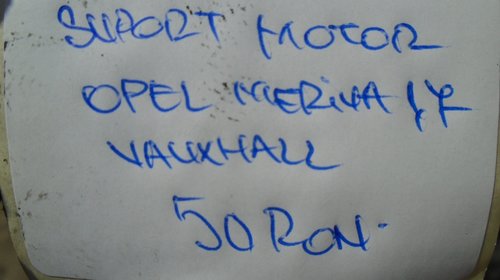 SUPORT MOTOR
OPEL MERIVA 1,7
VAUXHALL
50 RON.